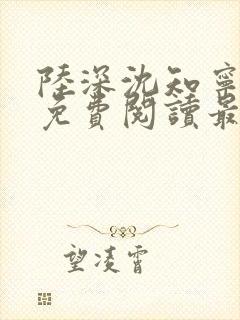 陸深沈知寧
免費閱讀最
望凌霄